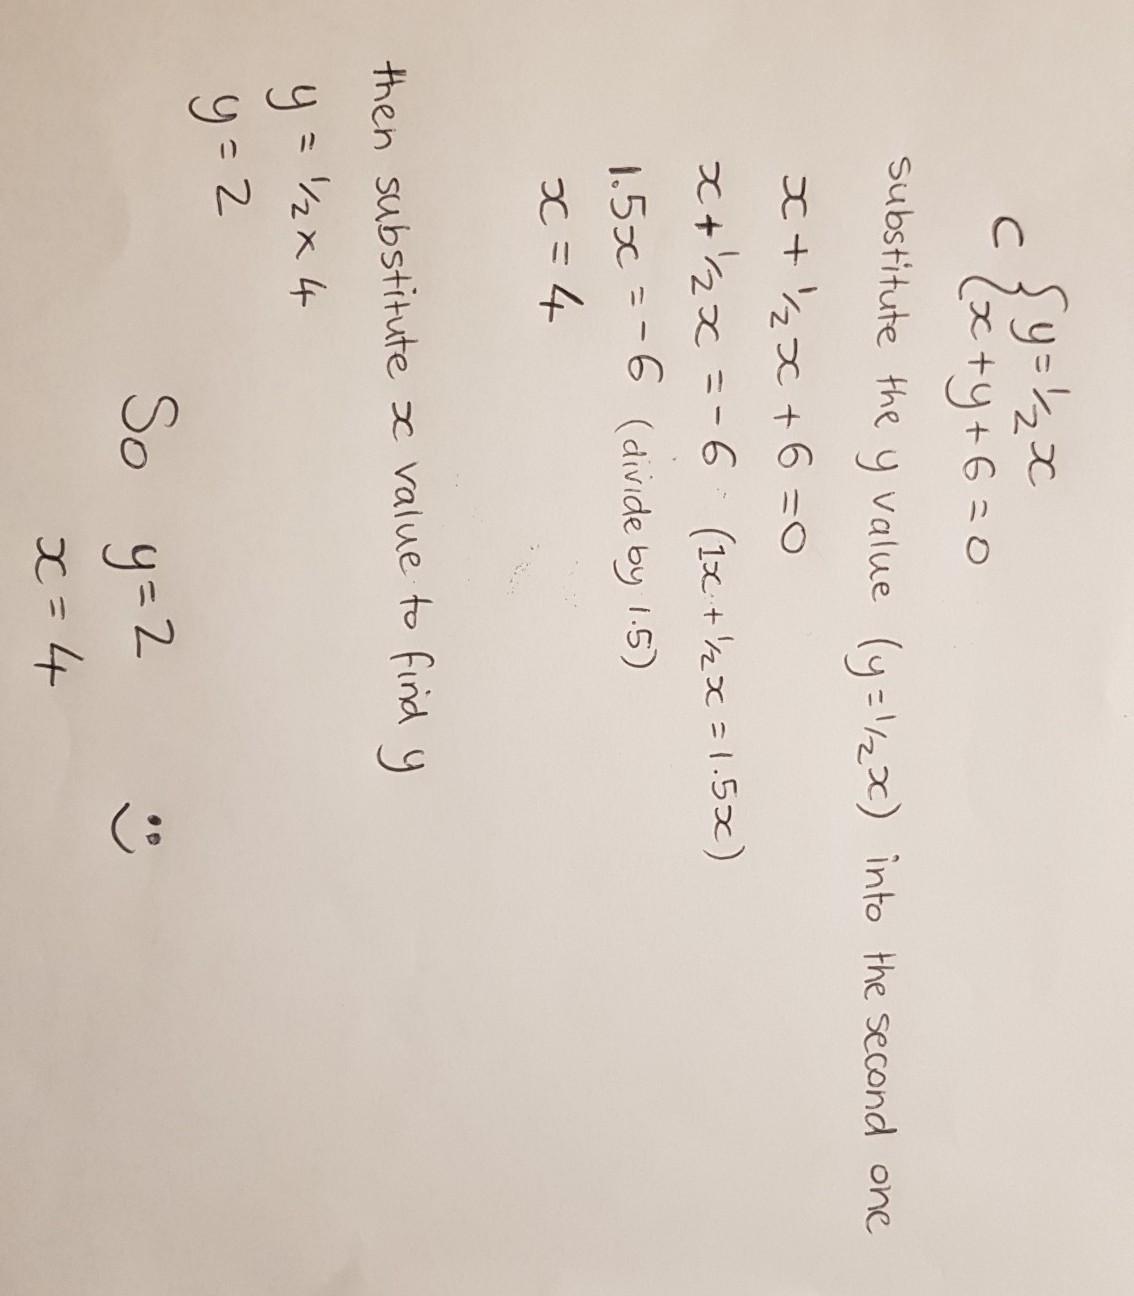 c { y = 1/2 x
x + y + 6 = 0
substitute the y value (y = 1/2 x) into the second one
x + 1/2 x + 6 = 0
x + 1/2 x = -6 (1x + 1/2 x = 1.5x)
1.5x = -6 (divide by 1.5)
x = 4
then substitute x value to find y
y = 1/2 x 4
y = 2
So y = 2 :)
x = 4